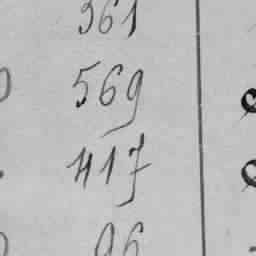 361
569
417
96